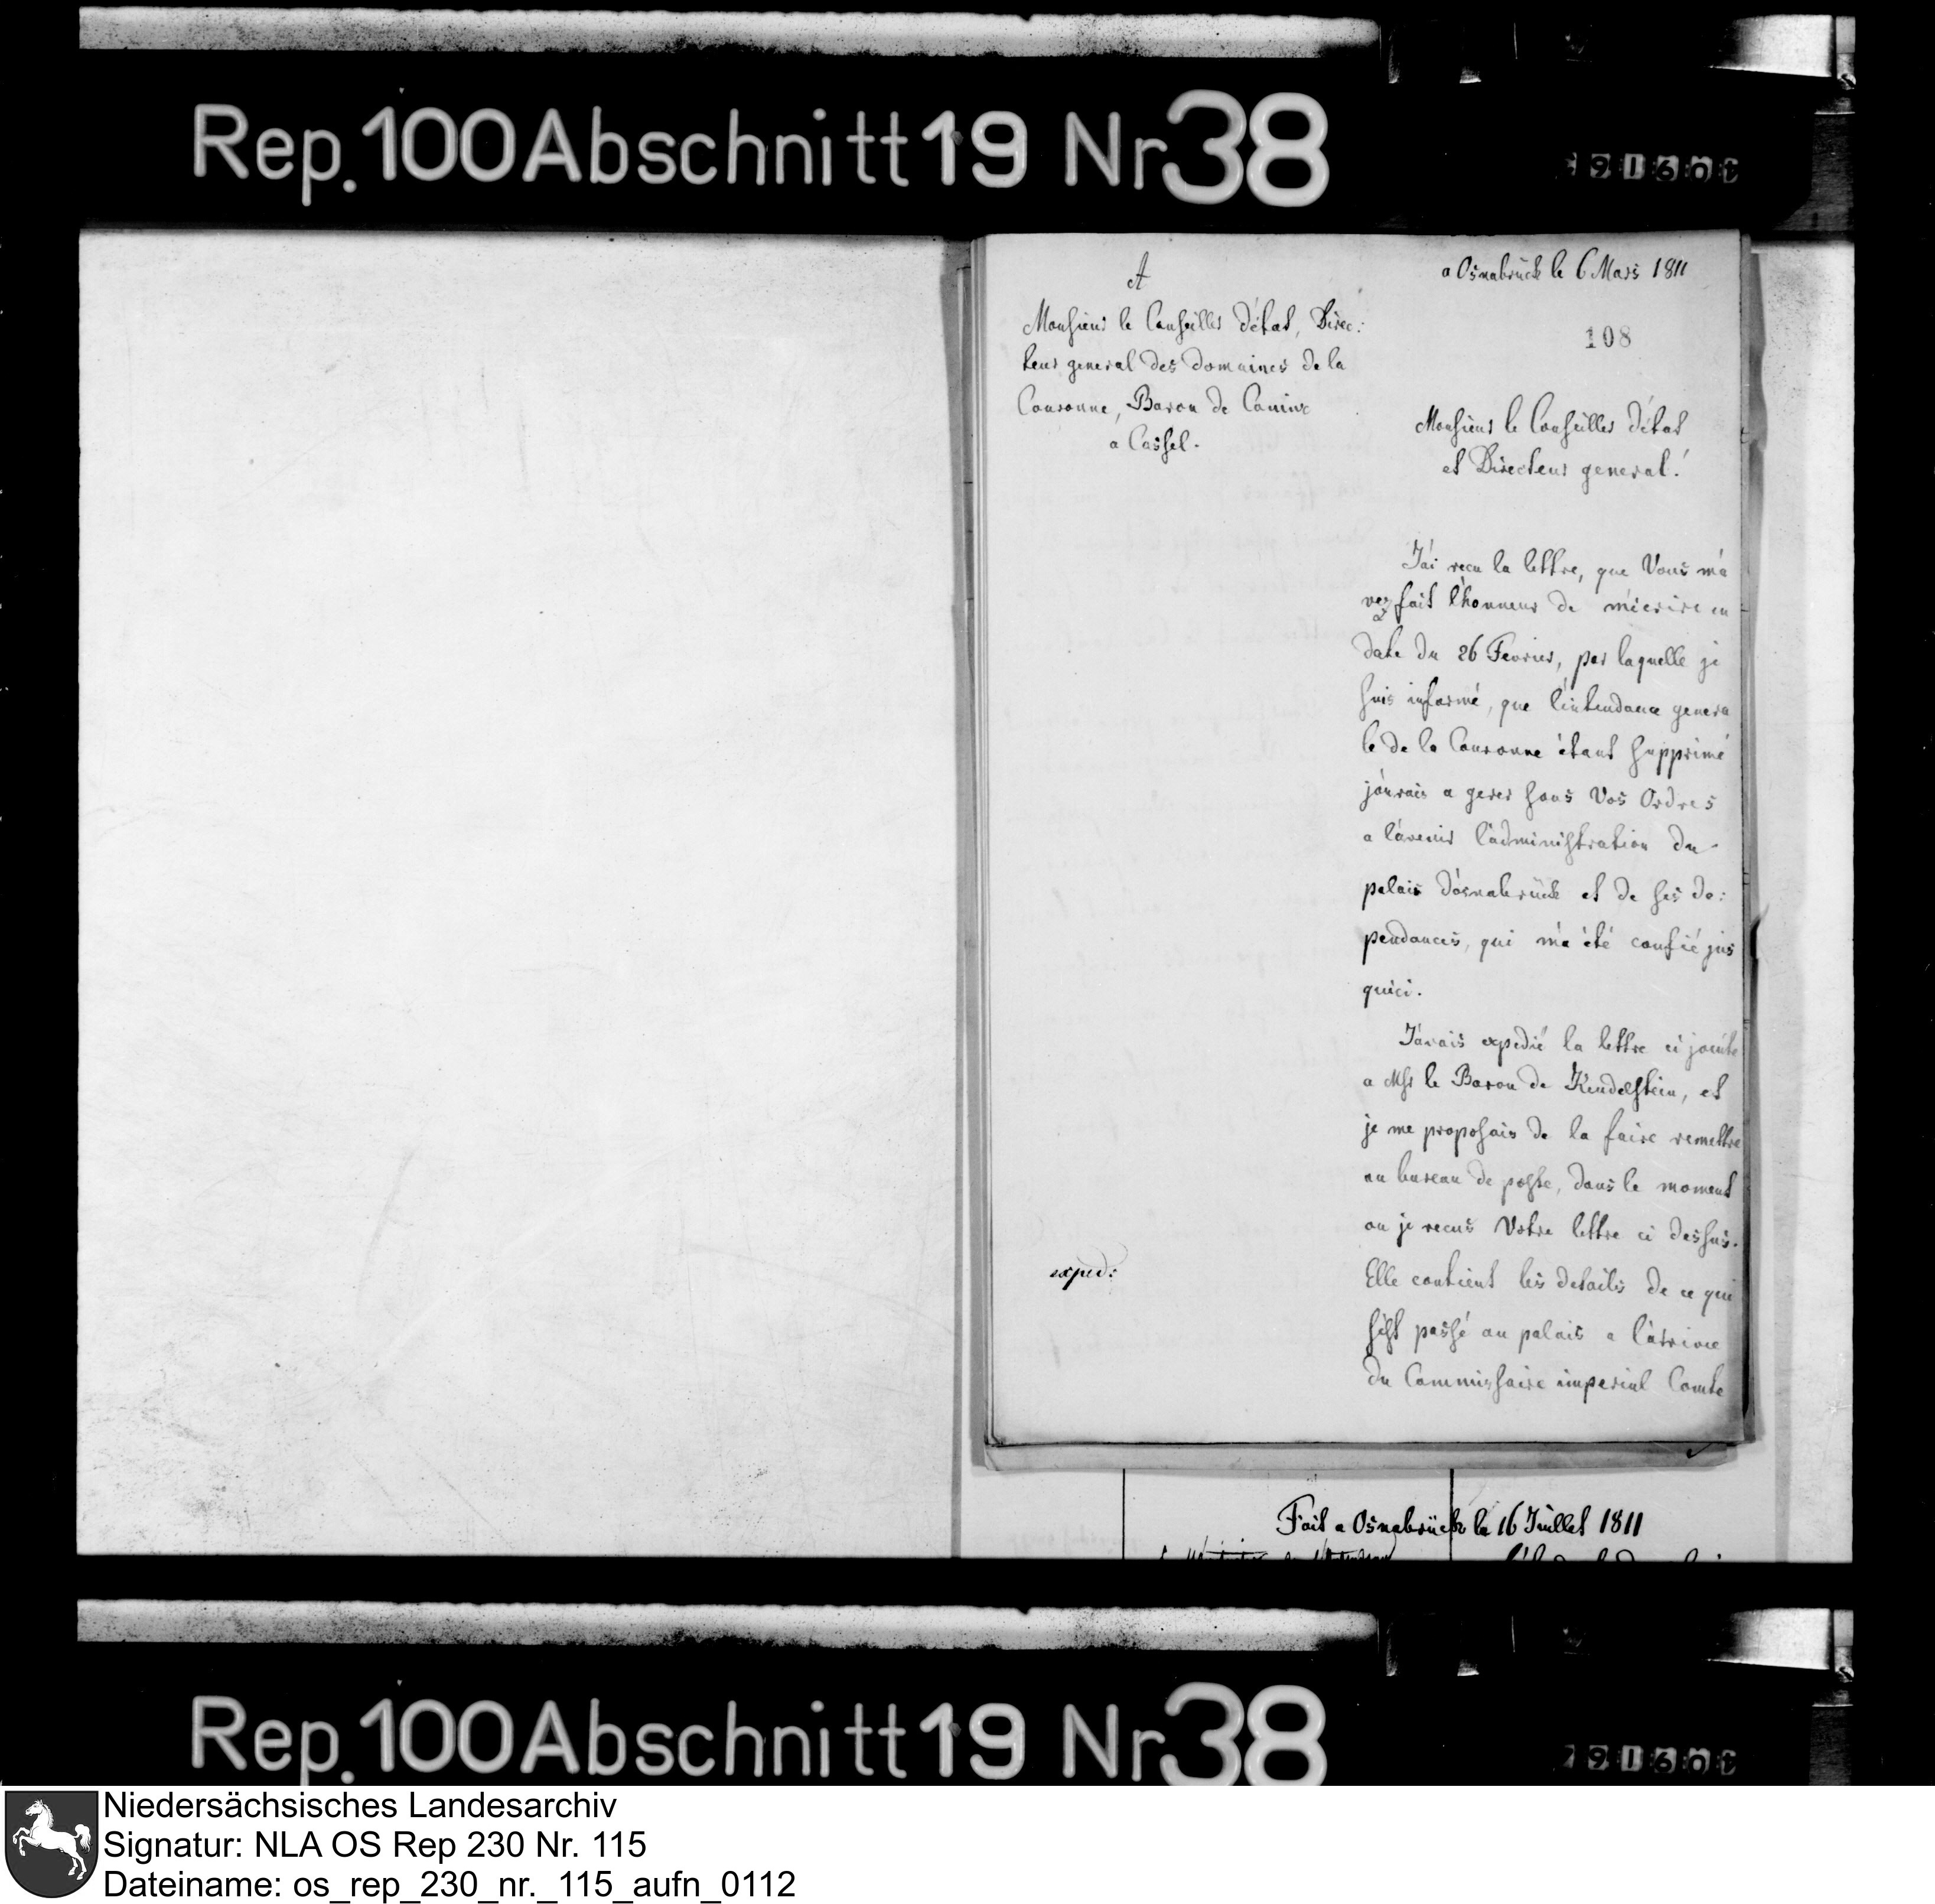 Rep.100Abschnitt19 Nr38
A
Monsieur le Conseiller d'état, Direc:
teur general des domaines de la
Couronne, Baron de
a Cassel.
a Osnabrück le 6 Mars 1811
108
Monsieur le Conseiller d'état
et Directeur general!
J'ai recu la lettre, que Vous m'a
vez fait l'honneur de m'ecrire en
date du 26 Fevrier, par laquelle je
suis informé, que l'intendance genera
le de la Couronne étant supprimé
j'aurais a gerer sous Vos Ordres
a l'avenir l'administration du
palais d'osnabrück et de ses de:
pendances, qui m'a été confié jus
qu'ici.
J'avais expedié la lettre ci jointe
a Msr le Baron de, et
je me proposais de la faire remettre
au bureau de poste, dans le moment
ou je recus Votre lettre ci dessus.
exped:
Elle contient les details de ce qui
s'est passé au palais a l'arrivee
du Commissaire imperial Comte
Fait a Osnabrück le 16 Juillet 1811
Rep.100Abschnitt19 Nr38
Niedersächsisches Landesarchiv
Signatur: NLA OS Rep 230 Nr. 115
Dateiname: os_rep_230_nr._115_aufn_0112